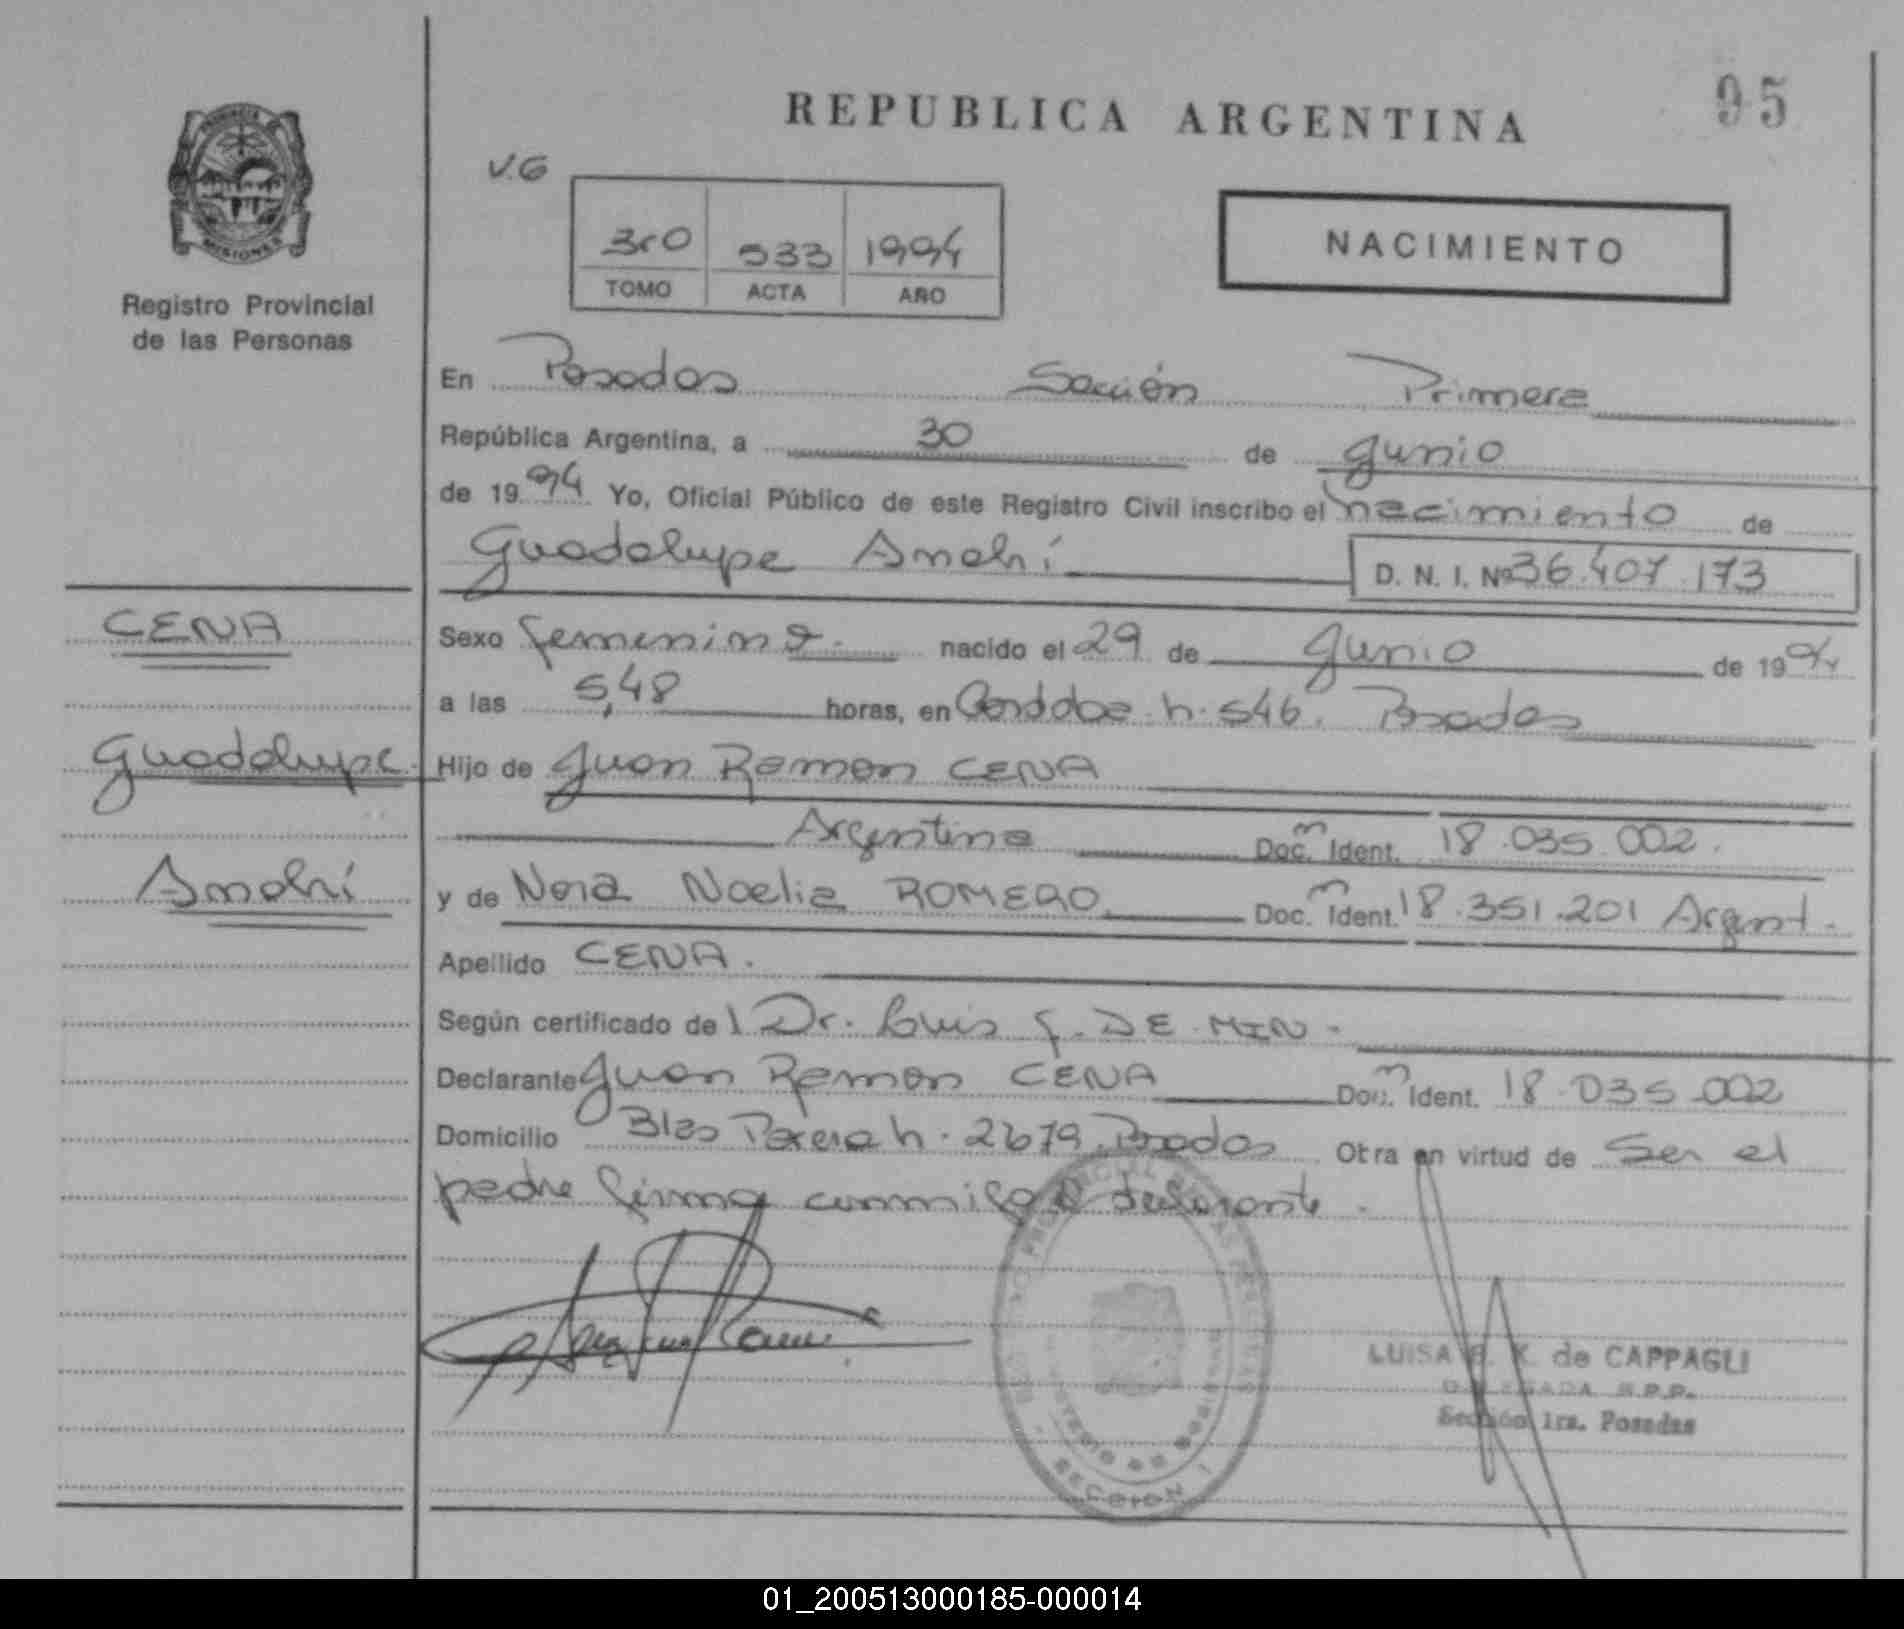 REPUBLICA ARGENTINA
95
V.G
3ro 533 1994
TOMO ACTA AÑO
NACIMIENTO
PROVINCIA DE
MISIONES
Registro Provincial
de las Personas
En Posadas Sección Primera
República Argentina, a 30 de Junio
de 1994 Yo, Oficial Público de este Registro Civil inscribo el nacimiento de
Guadalupe Anahí D. N. I. Nº 36.407.173
CENA
Guadalupe
Anahí
Sexo femenino nacido el 29 de Junio de 1994
a las 5,48 horas, en Cordoba n. 546. Posadas
Hijo de Juan Ramon CENA
Argentino Doc. Ident. 18.035.002.
y de Nora Noelia ROMERO Doc. Ident. 18.351.201 Argent.
Apellido CENA.
Según certificado del Dr. Luis DE MIN.
Declarante Juan Ramon CENA Doc. Ident. 18.035.002
Domicilio Blas Parera n. 2679. Posadas Otra en virtud de Ser el
padre firma conmigo el declarante.
SECCION 1
LUISA K. de CAPPAGLI
DELEGADA R.P.P.
Sección 1ra. Posadas
01_200513000185-000014